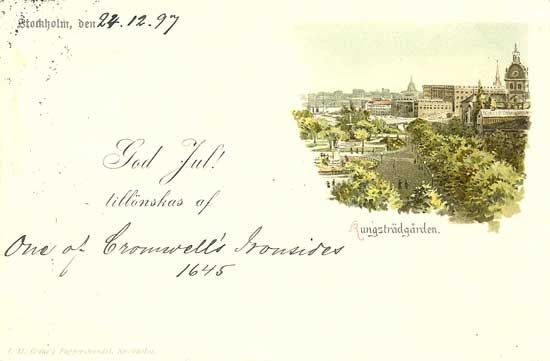 Stockholm, den 24.12.97
God Jul!
tillönskas af
Kungsträdgården.
One of Cromwell's Ironsides
1645
Pappershandel, Stockholm.